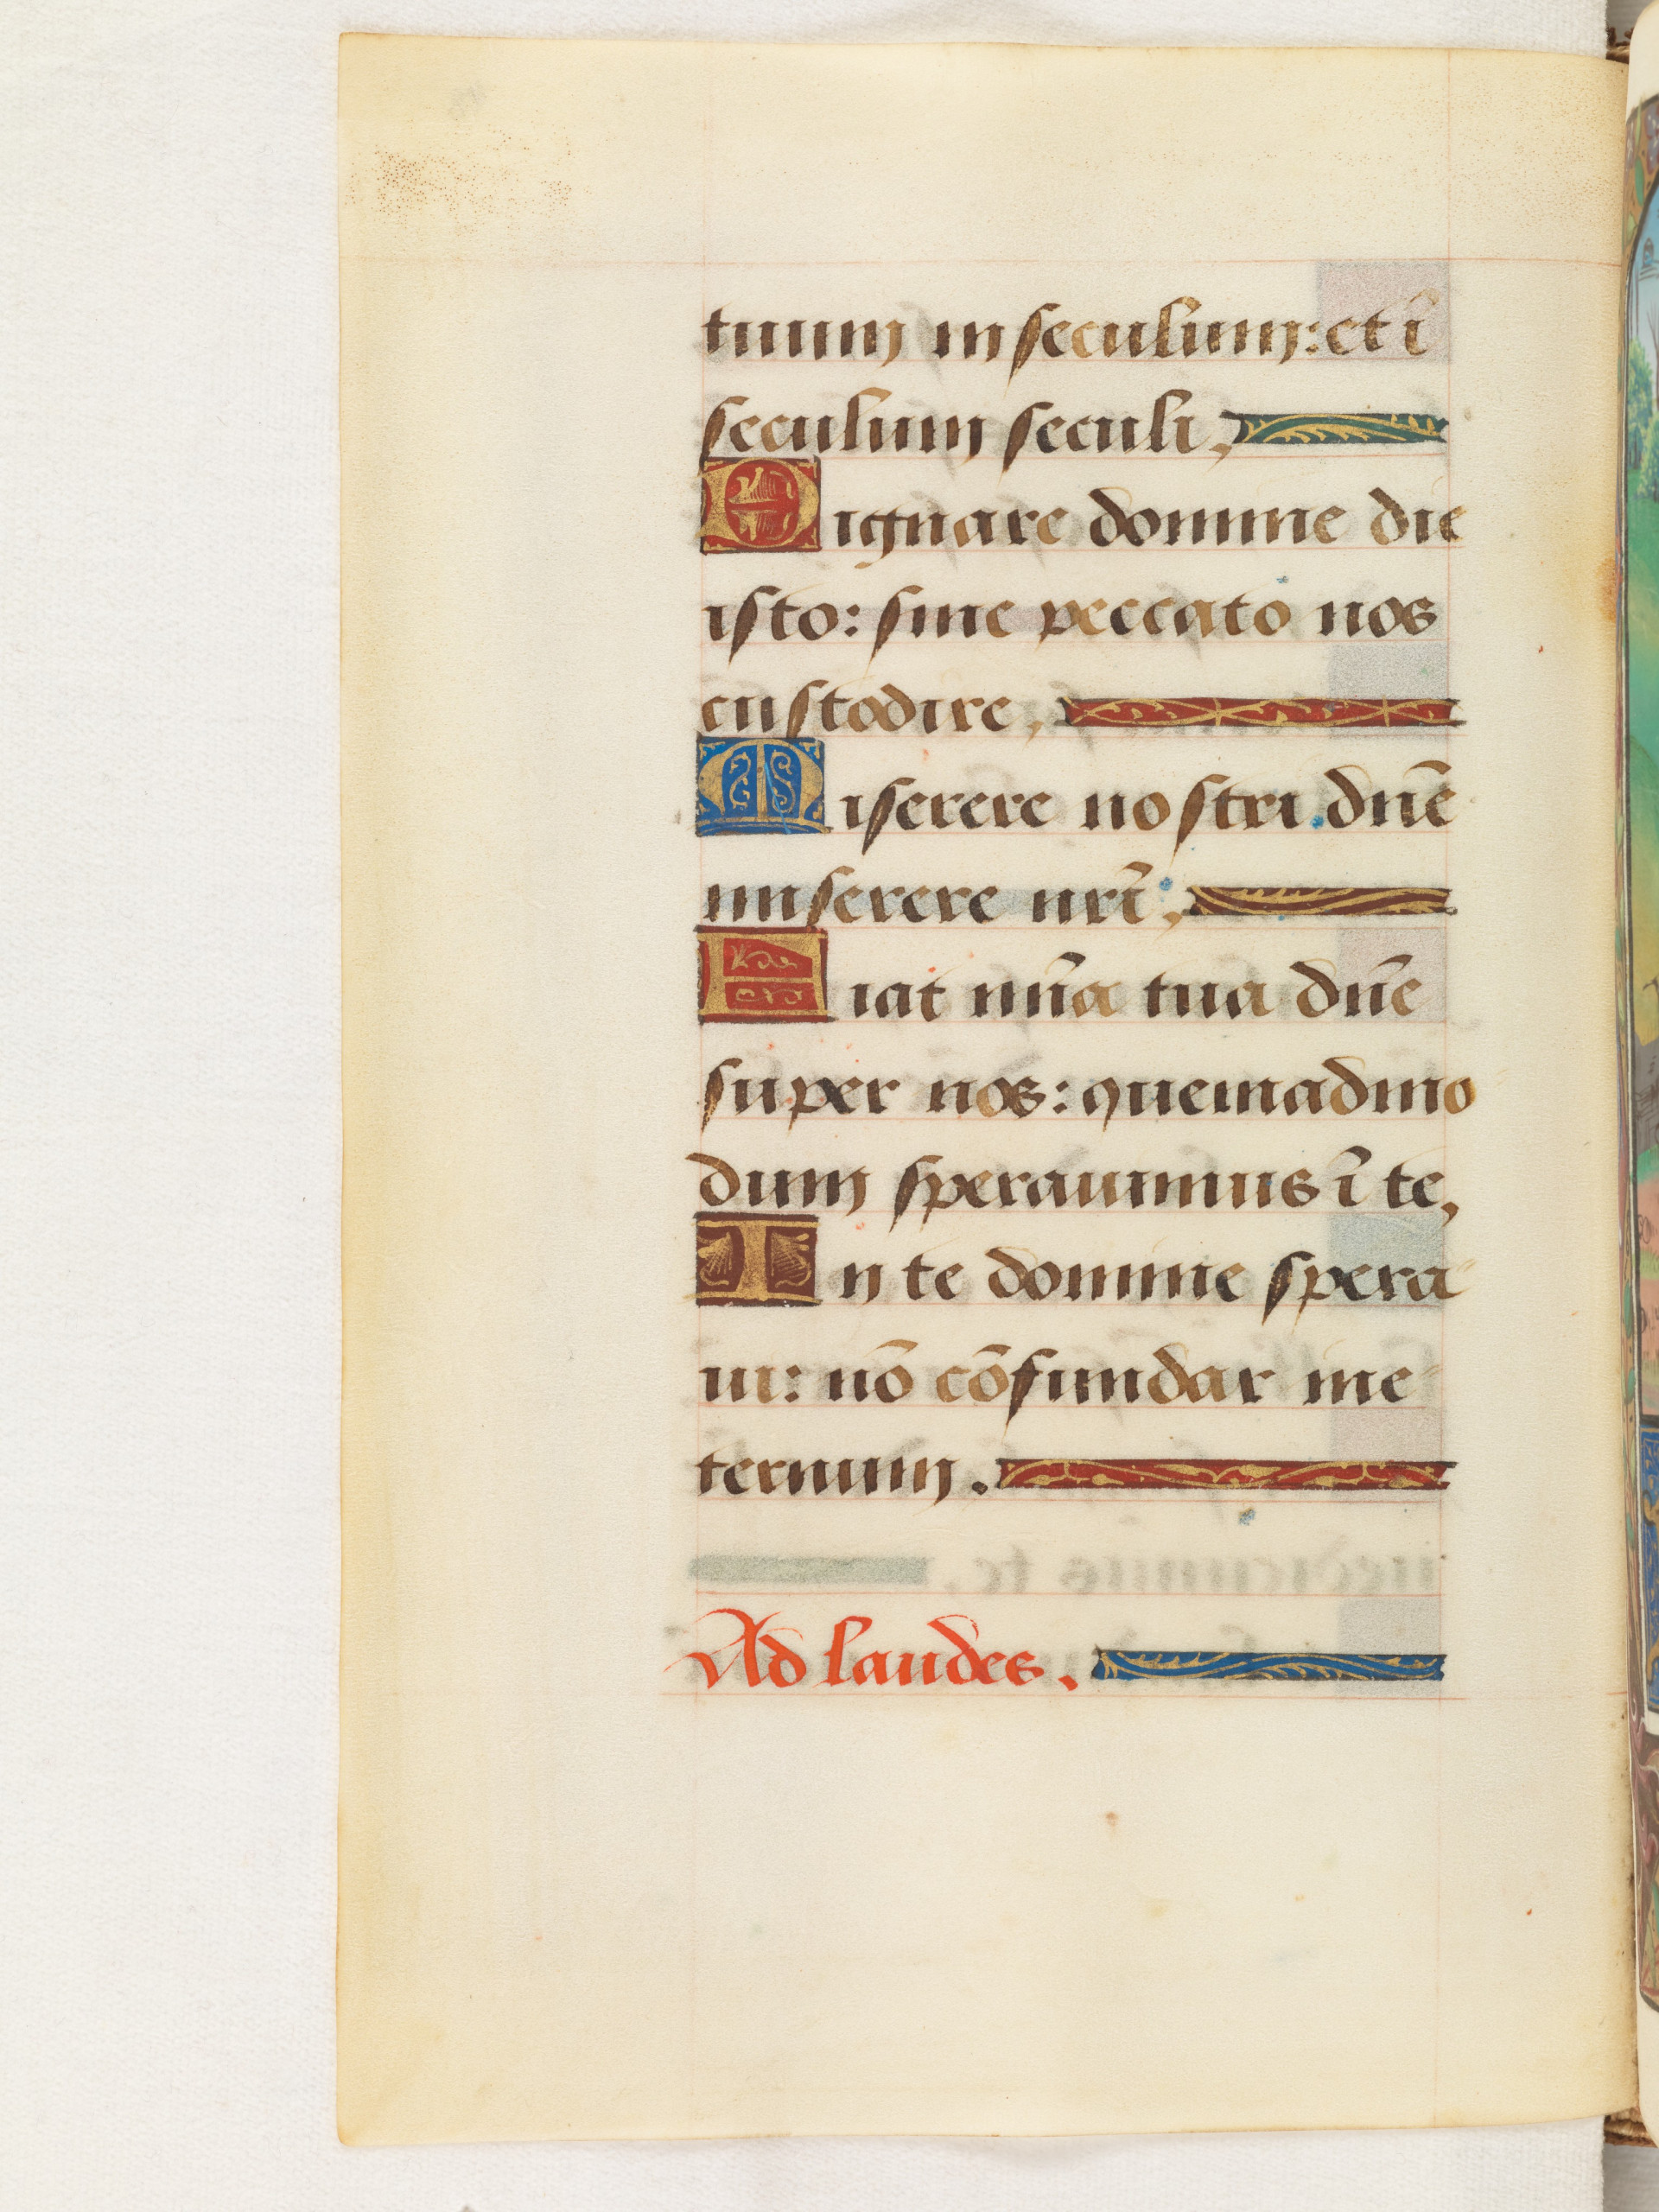 tuum in seculum: et ī
seculum seculi.
Dignare domine die
isto: sine peccato nos
custodire.
Miserere nostri dn̄e
miserere nr̄i.
Fiat mīa tua dn̄e
super nos: quemadmo
dum sperauimus ī te,
In te domine spera
ui: nō cōfundar ine
ternum.
Ad laudes.